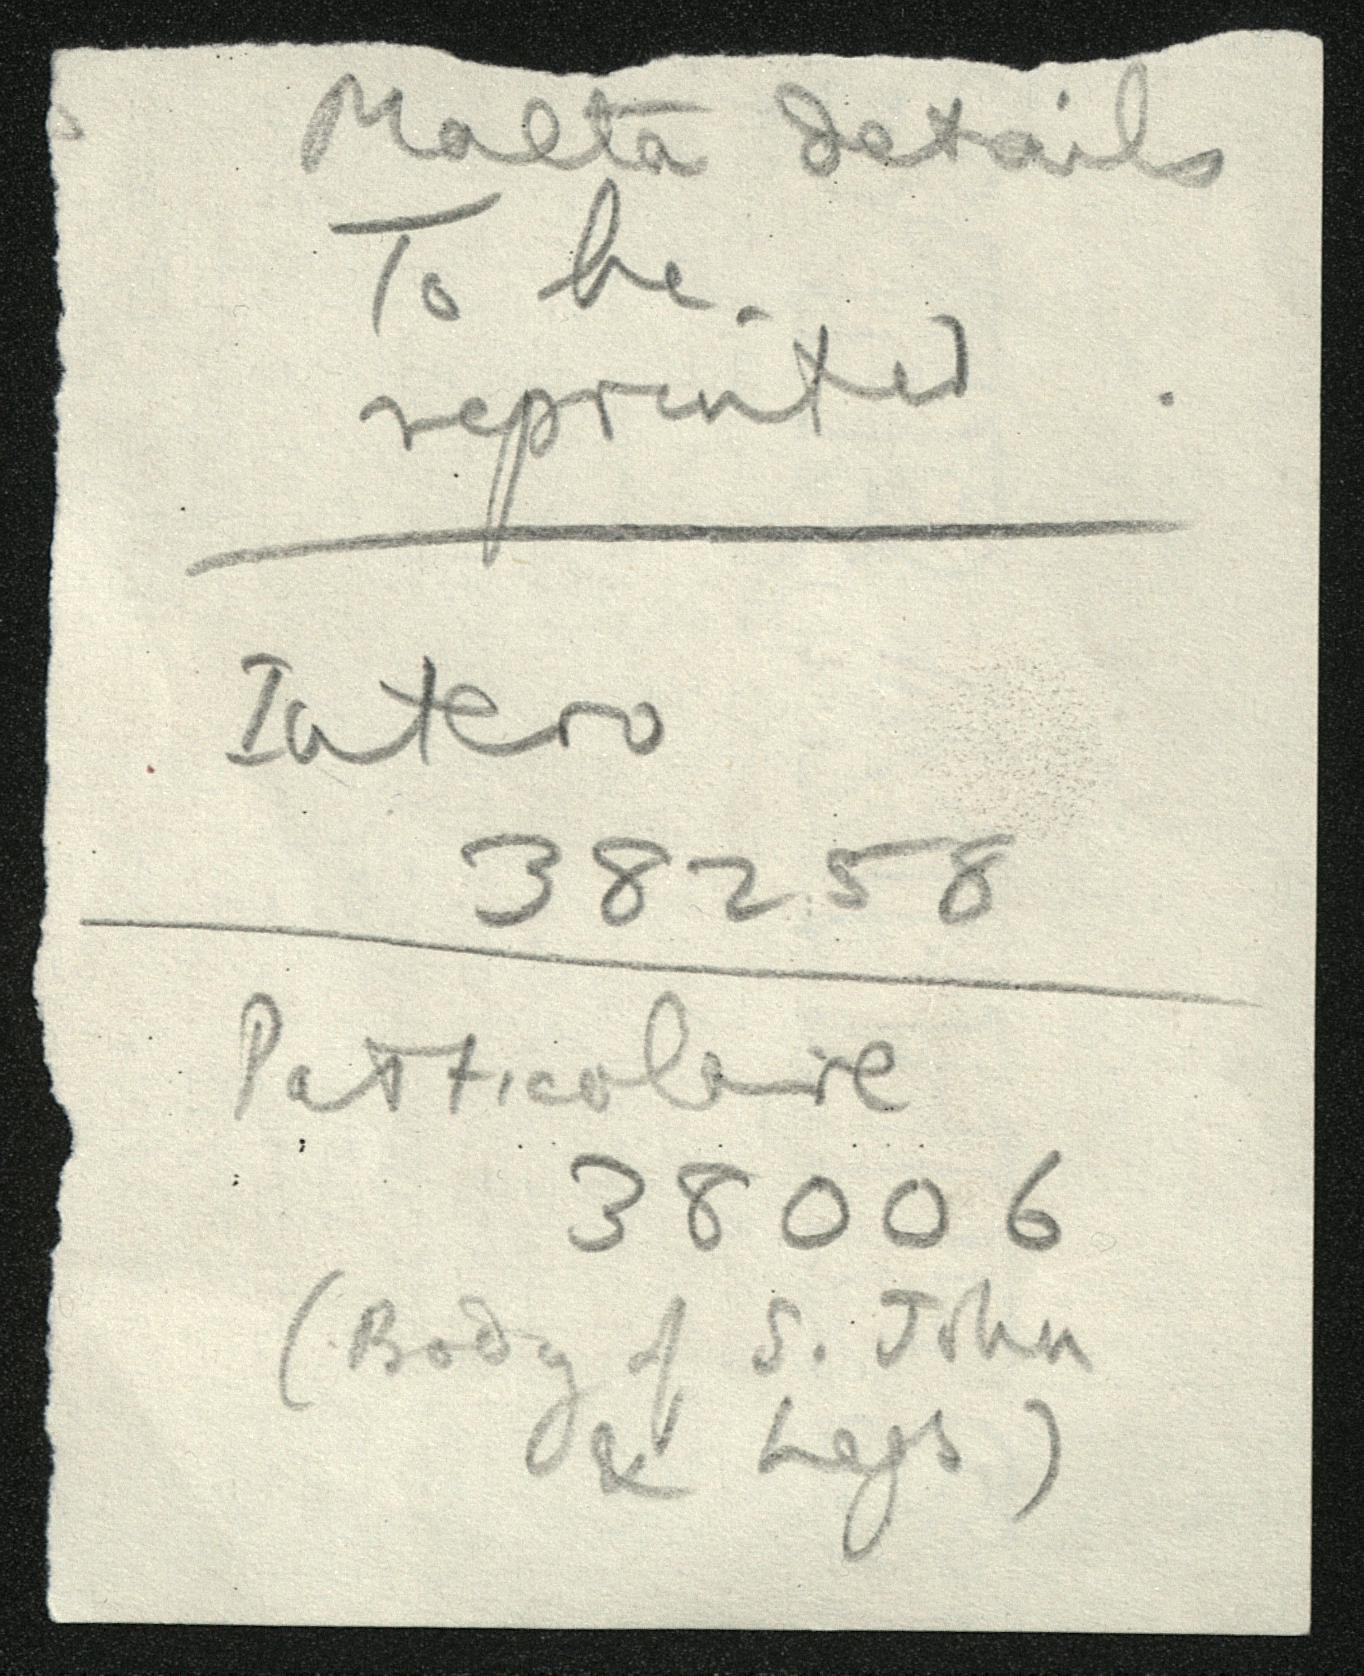 Malta details
To be
reprinted
Intero
38258
Particolaire
38006
(Body of S. John
& Legs)